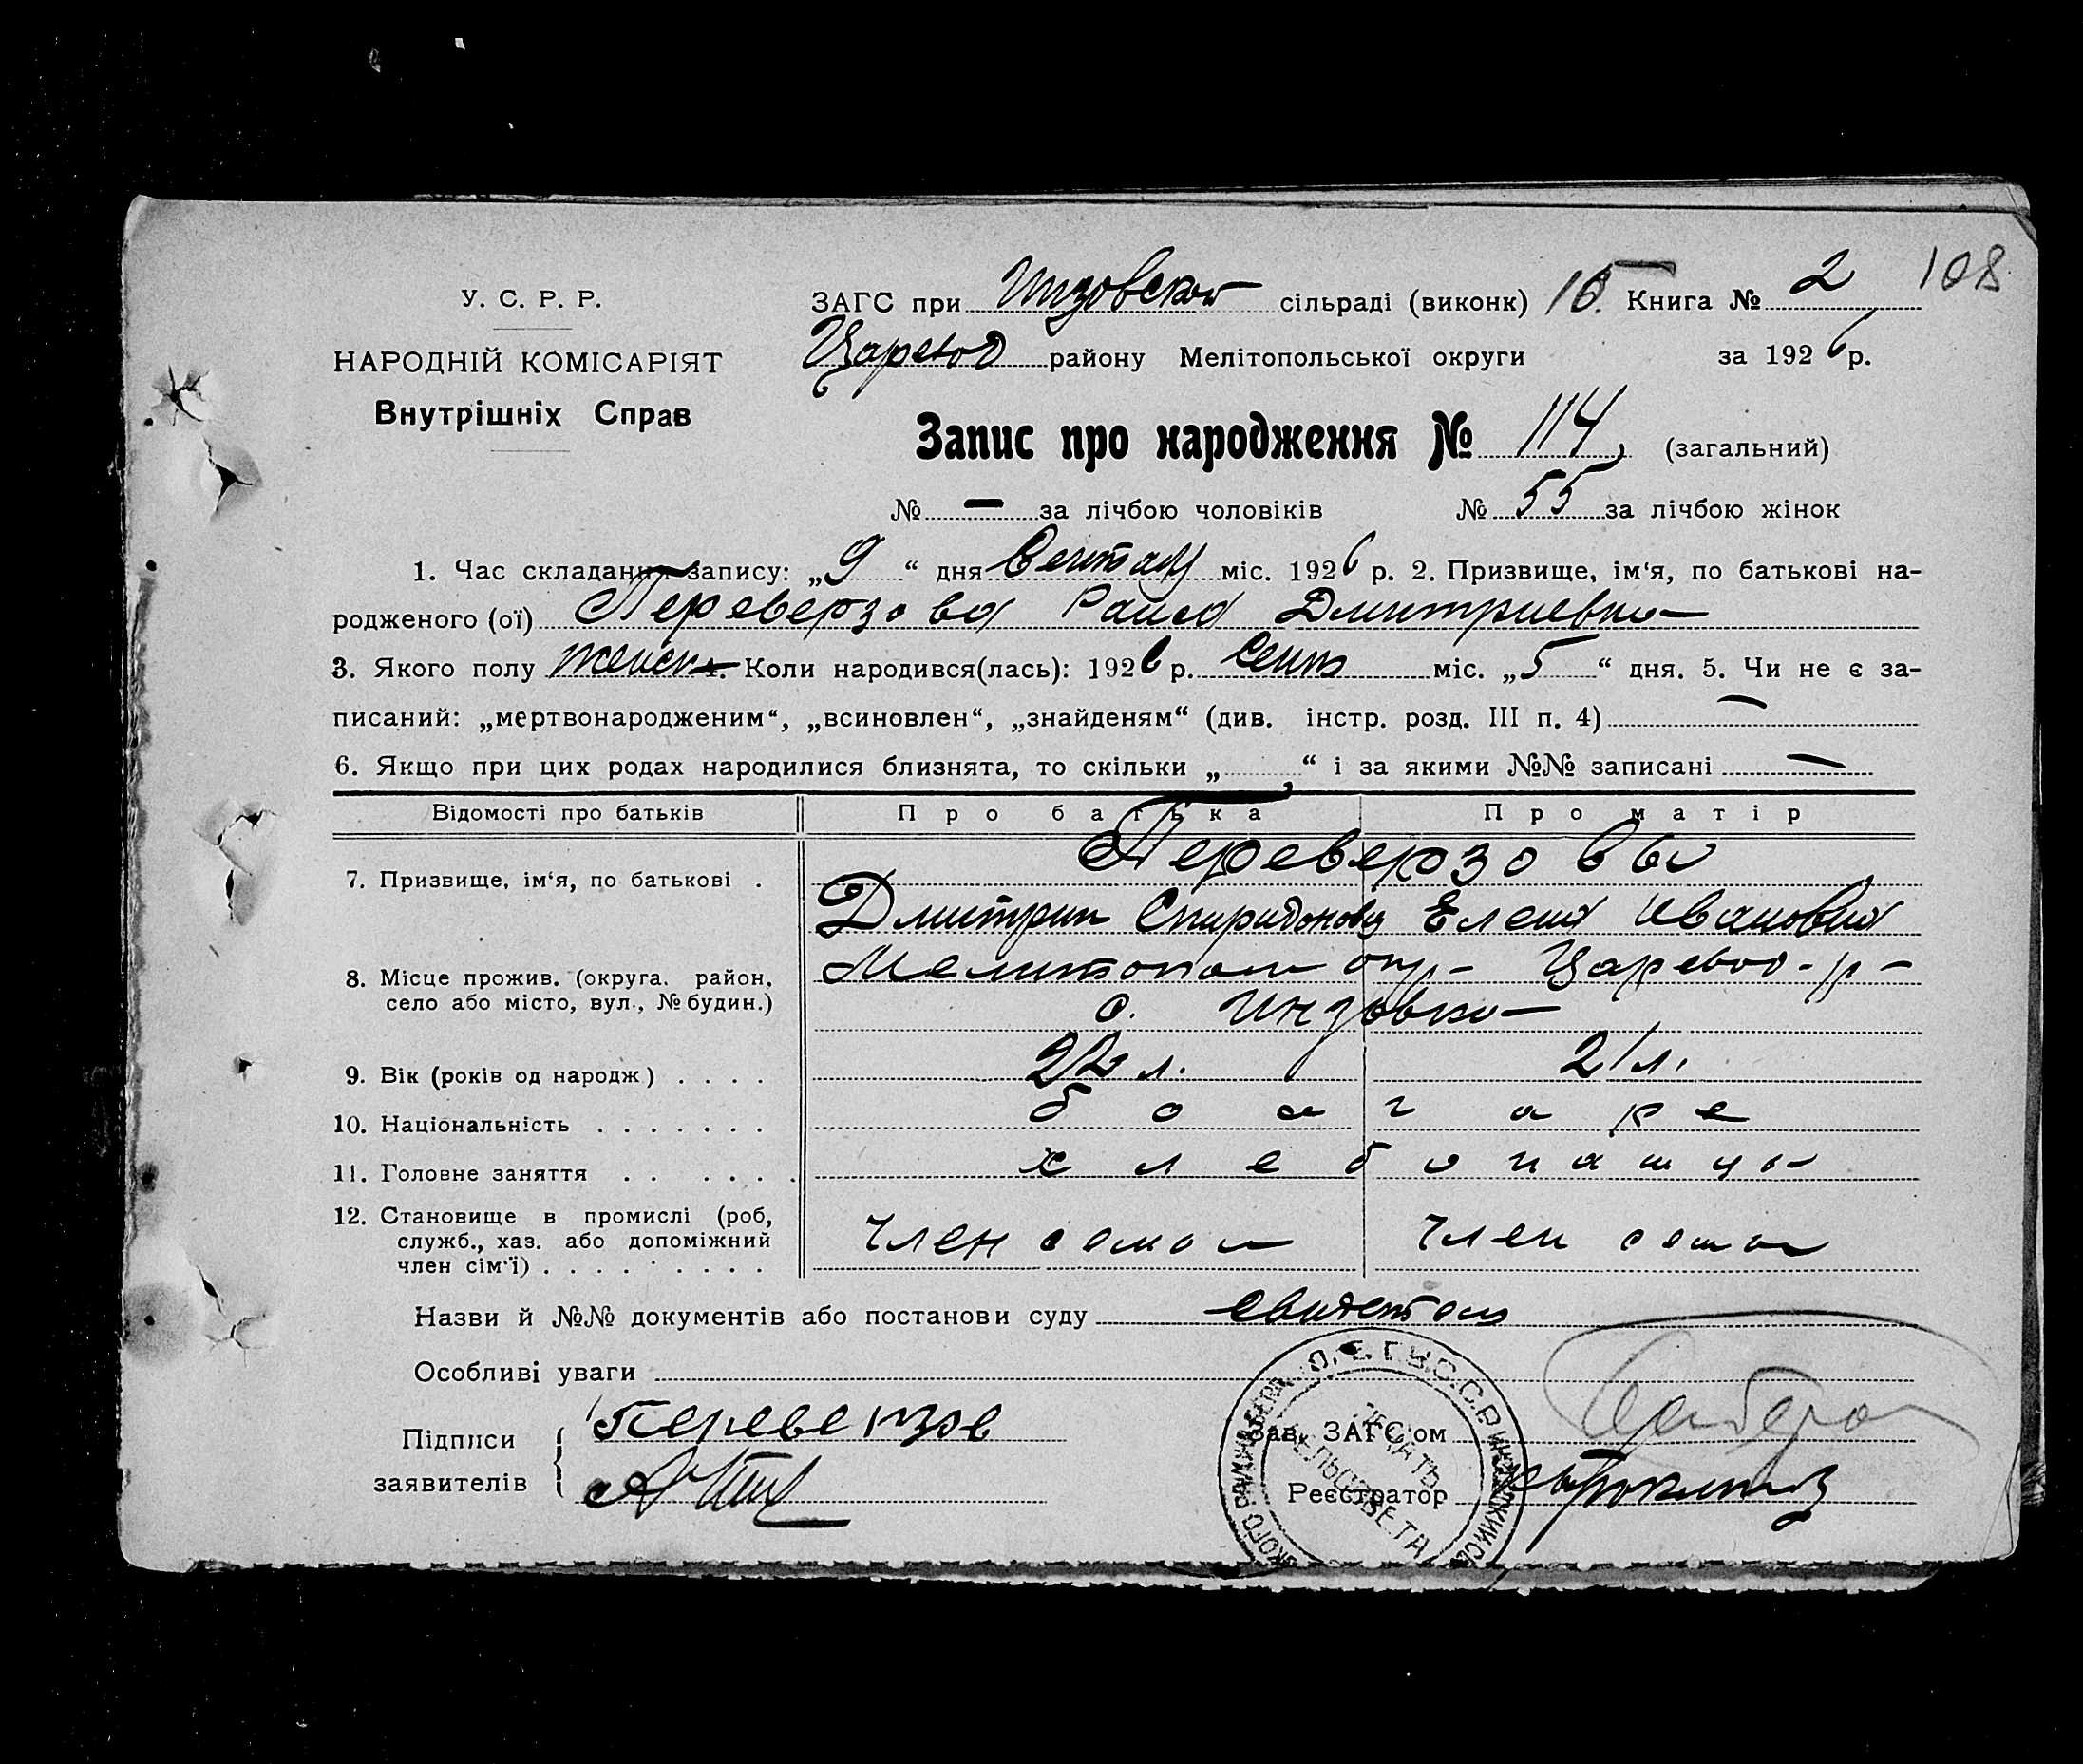 108
У. С. Р. Р.
НАРОДНІЙ КОМІСАРІЯТ
Внутрішніх Справ
ЗАГС при Инзовской сільраді (виконк) 15. Книга № 2
Царевод району Мелітопольської округи за 1926 р.
Запис про народження № 114 (загальний)
№ — за лічбою чоловіків № 55 за лічбою жінок
1. Час складання запису: „9“ дня Сентяб міс. 1926 р. 2. Призвище, ім‘я, по батькові на-
родженого (ої) Переверзова Раиса Дмитриевна
3. Якого полу женск 4. Коли народився(лась): 1926 р. Сент міс. „5“ дня. 5. Чи не є за-
писаний: „мертвонародженим“, „всиновлен“, „знайденям“ (див. інстр. розд. III п. 4) —
6. Якщо при цих родах народилися близнята, то скільки „ “ і за якими №№ записані —
Відомості про батьків Про батька Про матір
7. Призвище, ім‘я, по батькові . Переверзовы
Дмитрий Спиридонов Елена Ивановна
8. Місце прожив. (округа. район, Мелитопол окр- Царевод-р-
село або місто, вул., № будин.) с. Инзовка
9. Вік (років од народж) . . . . 22 л. 21 л.
10. Національність . . . . . . . болгаре
11. Головне заняття . . . . . . хлебопашцы
12. Становище в промислі (роб,
служб., хаз. або допоміжний член семьи член семьи
член сім‘ї) . . . . . . . . .
Назви й №№ документів або постанови суду свидетели
Особливі уваги
Підписи Переверзов
заявителів
Зав. ЗАГС‘ом
Реєстратор
ПЕЧАТЬ
СЕЛЬСОВЕТА